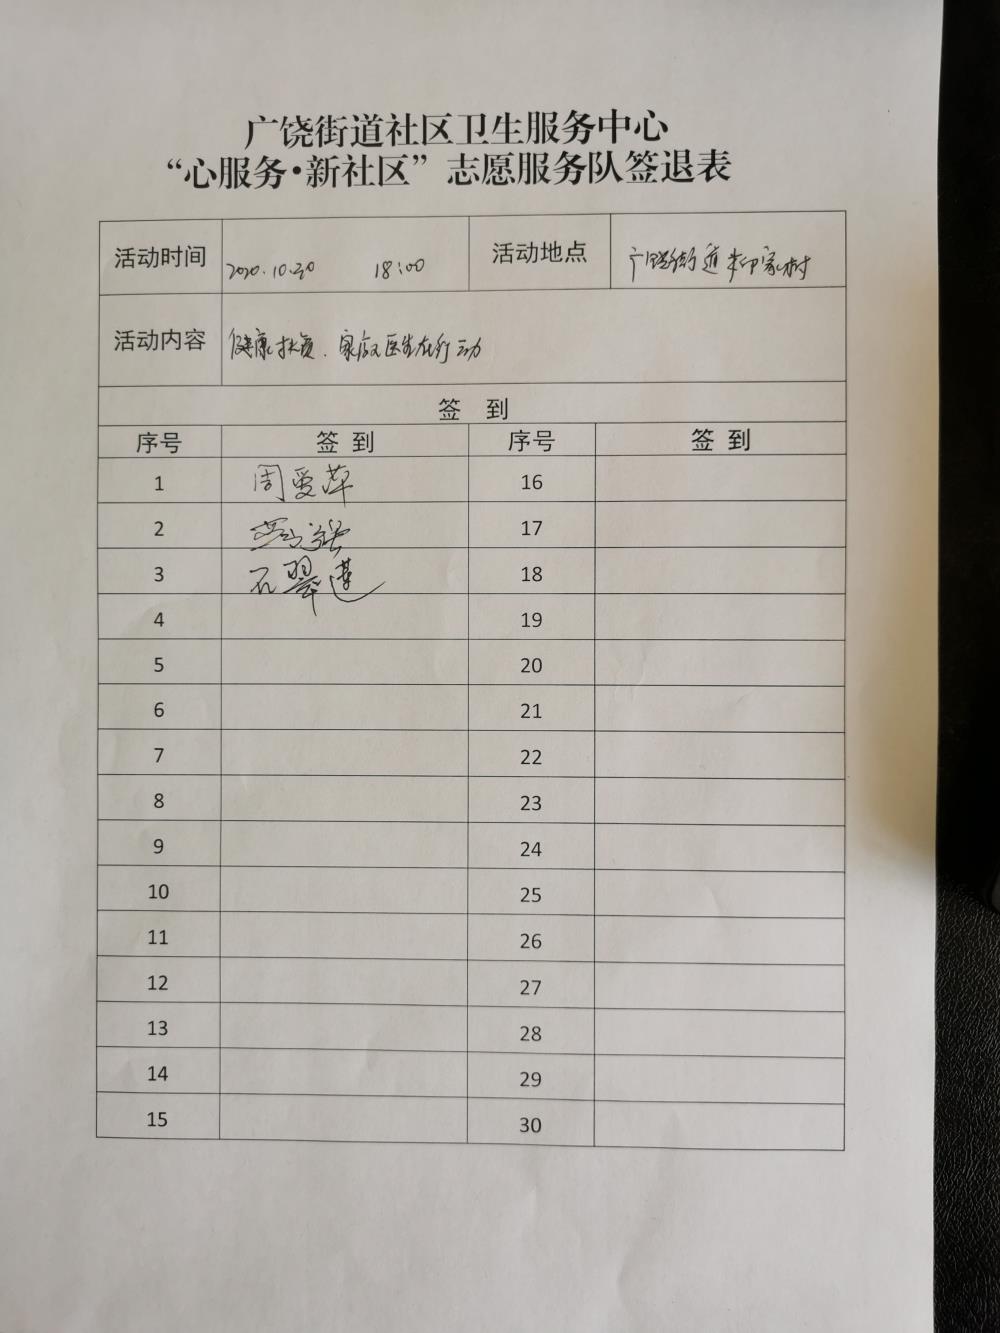 广饶街道社区卫生服务中心
“心服务·新社区”志愿服务队签退表
活动时间 2020.10.20 18:00 活动地点 广饶街道
活动内容 健康扶贫、家庭医生在行动
签 到
序号 签到 序号 签到
1 周爱萍 16
2 17
3 石翠莲 18
4 19
5 20
6 21
7 22
8 23
9 24
10 25
11 26
12 27
13 28
14 29
15 30